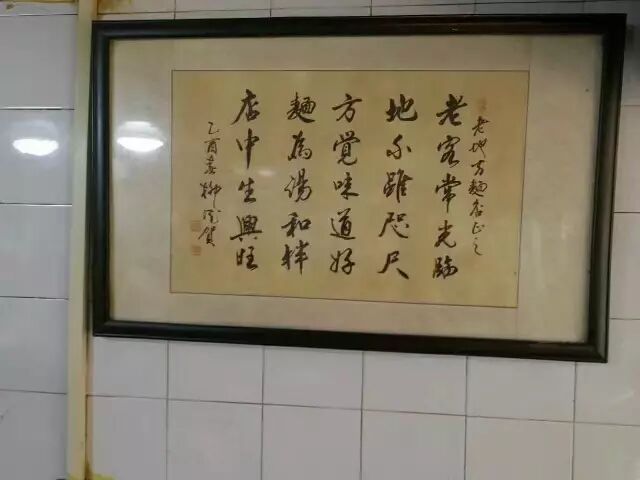 老地方麵店正之
老客常光臨
地不雖咫尺
方覺味道好
麵為湯和拌
店中生興旺
乙酉春柳賀